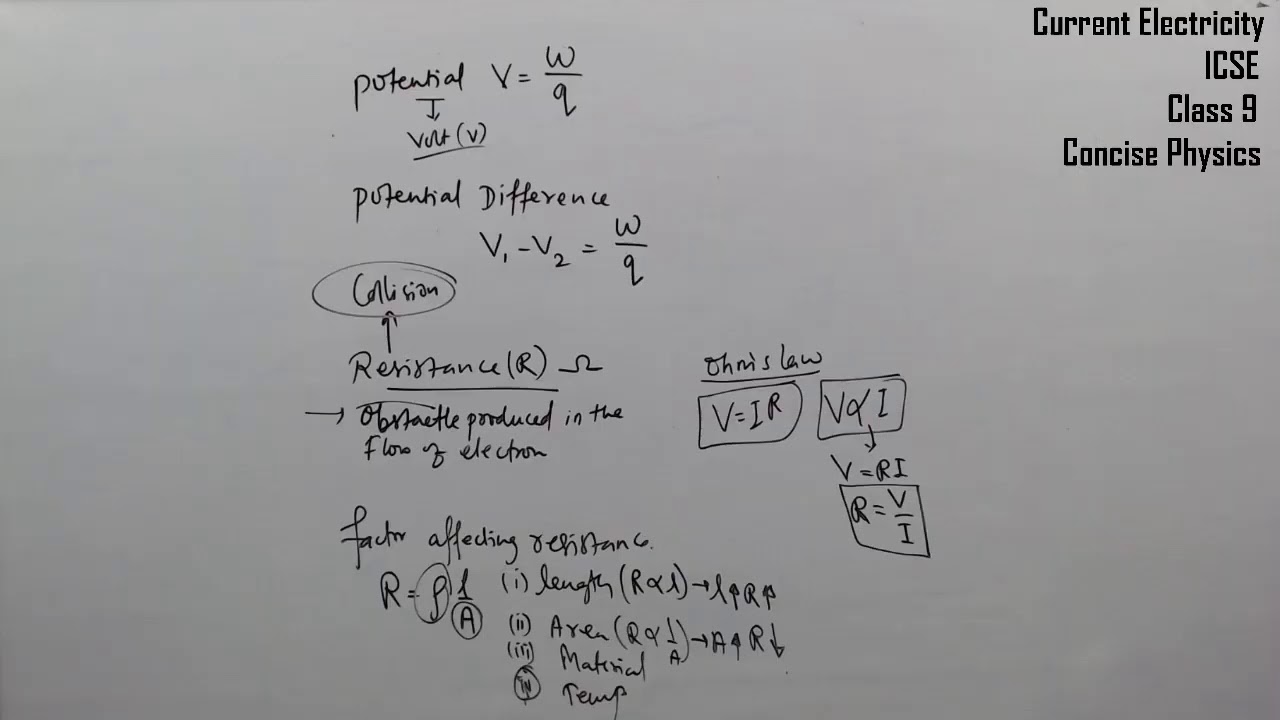 Current Electricity
ICSE
Class 9
Concise Physics
potential V = W/q
Volt (V)
potential Difference
V₁ - V₂ = W/q
Collision
Resistance (R) Ω
→ Obstactle produced in the
Flow of electron
ohm's law
V = IR V ∝ I
V = RI
R = V/I
factor affecting resistance.
R = ρ l/A (i) length (R ∝ l) → l↑ R↑
(ii) Area (R ∝ 1/A) → A↑ R↓
(iii) Material
(iv) Temp